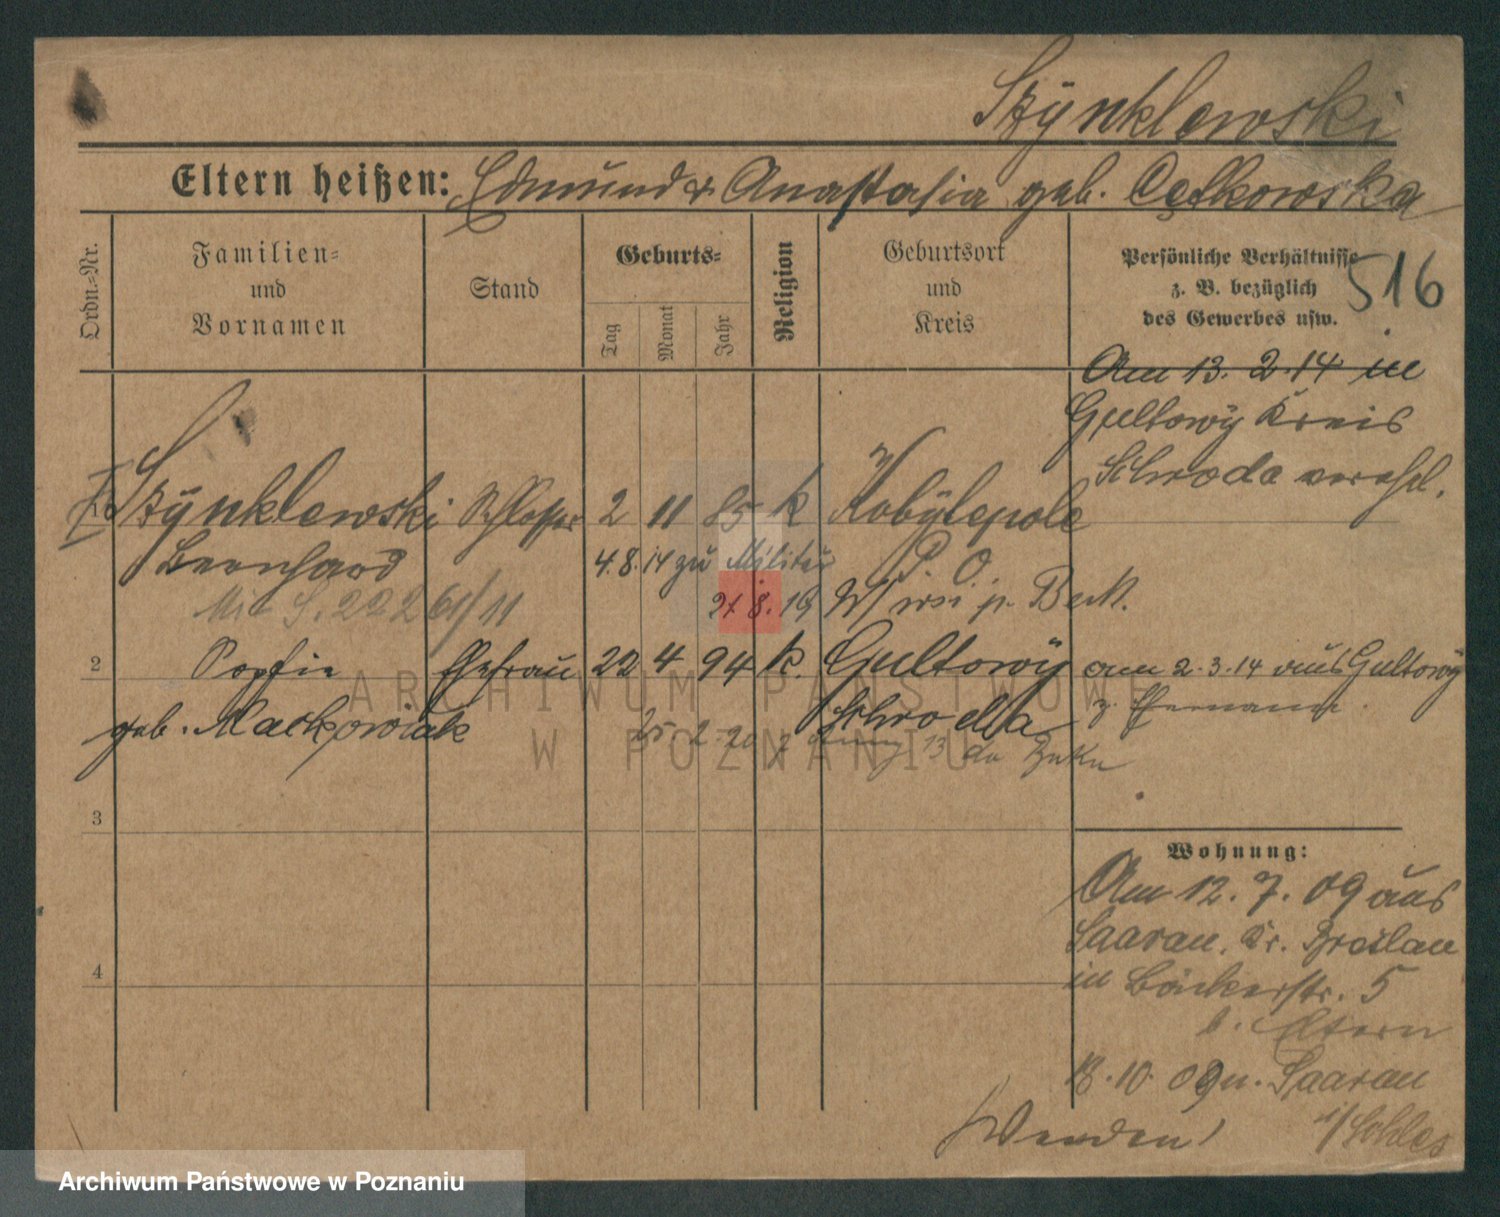 Szÿnklewski
Eltern heißen: Edmund & Anastasia geb. Cętkowska
Ordn.=Nr.
Familien=
und
Vornamen
Stand
Geburts=
Tag
Monat
Jahr
Religion
Geburtsort
und
Kreis
Persönliche Verhältnisse
z. B. bezüglich
des Gewerbes usw.
516
Am 13. 2. 14 in
Gultowÿ Kreis
Schroda verehel.
1 Szÿnklewski Schlosser 2 11 85 k Kobÿlepole
Bernhard 4. 8. 14 zu Militär P. O.
Mil S. 222 61/11 27 8. 19
2 Sophie Ehefrau 22 4 94 k. Gultowÿ am 2. 3. 14 aus Gultowÿ
geb. Maćkowiak Schroda z. Ehemann.
25. 2. 20 13
3
Wohnung:
Am 12. 7. 09 aus
Saarau, Kr. Breslau
in Bäckerstr. 5
b. Eltern
4
18. 10. 09 n. Saarau
i/Schles
Wenden!
ARCHIWUM PAŃSTWOWE
W POZNANIU
Archiwum Państwowe w Poznaniu